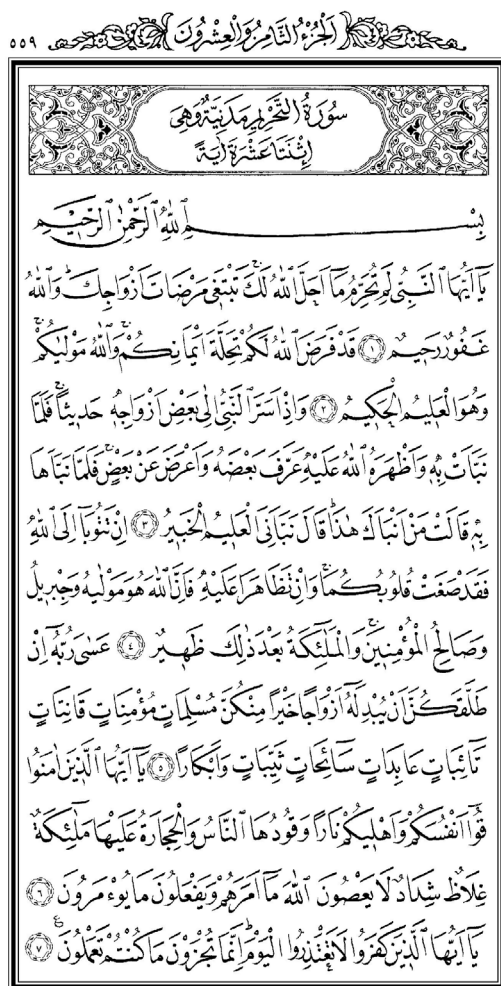 ٥٥٩
اَلْجُزْءُ الثَّامِنُ وَالْعِشْرُونَ
سُورَةُ التَّحْرِيمِ مَدَنِيَّةٌ وَهِيَ
اِثْنَتَا عَشْرَةَ اٰيَةً
بِسْمِ اللّٰهِ الرَّحْمٰنِ الرَّحِيمِ
يَا اَيُّهَا النَّبِيُّ لِمَ تُحَرِّمُ مَا اَحَلَّ اللّٰهُ لَكَ تَبْتَغِي مَرْضَاتَ اَزْوَاجِكَ وَاللّٰهُ
غَفُورٌ رَحِيمٌ ﴿١﴾ قَدْ فَرَضَ اللّٰهُ لَكُمْ تَحِلَّةَ اَيْمَانِكُمْ وَاللّٰهُ مَوْلٰيكُمْ
وَهُوَ الْعَلِيمُ الْحَكِيمُ ﴿٢﴾ وَاِذْ اَسَرَّ النَّبِيُّ اِلٰى بَعْضِ اَزْوَاجِهِ حَدِيثًا فَلَمَّا
نَبَّاَتْ بِهِ وَاَظْهَرَهُ اللّٰهُ عَلَيْهِ عَرَّفَ بَعْضَهُ وَاَعْرَضَ عَنْ بَعْضٍ فَلَمَّا نَبَّاَهَا
بِهِ قَالَتْ مَنْ اَنْبَاَكَ هٰذَا قَالَ نَبَّاَنِيَ الْعَلِيمُ الْخَبِيرُ ﴿٣﴾ اِنْ تَتُوبَا اِلَى اللّٰهِ
فَقَدْ صَغَتْ قُلُوبُكُمَا وَاِنْ تَظَاهَرَا عَلَيْهِ فَاِنَّ اللّٰهَ هُوَ مَوْلٰيهُ وَجِبْرِيلُ
وَصَالِحُ الْمُؤْمِنِينَ وَالْمَلٰئِكَةُ بَعْدَ ذٰلِكَ ظَهِيرٌ ﴿٤﴾ عَسٰى رَبُّهُ اِنْ
طَلَّقَكُنَّ اَنْ يُبْدِلَهُ اَزْوَاجًا خَيْرًا مِنْكُنَّ مُسْلِمَاتٍ مُؤْمِنَاتٍ قَانِتَاتٍ
تَائِبَاتٍ عَابِدَاتٍ سَائِحَاتٍ ثَيِّبَاتٍ وَاَبْكَارًا ﴿٥﴾ يَا اَيُّهَا الَّذِينَ اٰمَنُوا
قُوا اَنْفُسَكُمْ وَاَهْلِيكُمْ نَارًا وَقُودُهَا النَّاسُ وَالْحِجَارَةُ عَلَيْهَا مَلٰئِكَةٌ
غِلَاظٌ شِدَادٌ لَا يَعْصُونَ اللّٰهَ مَا اَمَرَهُمْ وَيَفْعَلُونَ مَا يُؤْمَرُونَ ﴿٦﴾
يَا اَيُّهَا الَّذِينَ كَفَرُوا لَا تَعْتَذِرُوا الْيَوْمَ اِنَّمَا تُجْزَوْنَ مَا كُنْتُمْ تَعْمَلُونَ ﴿٧﴾